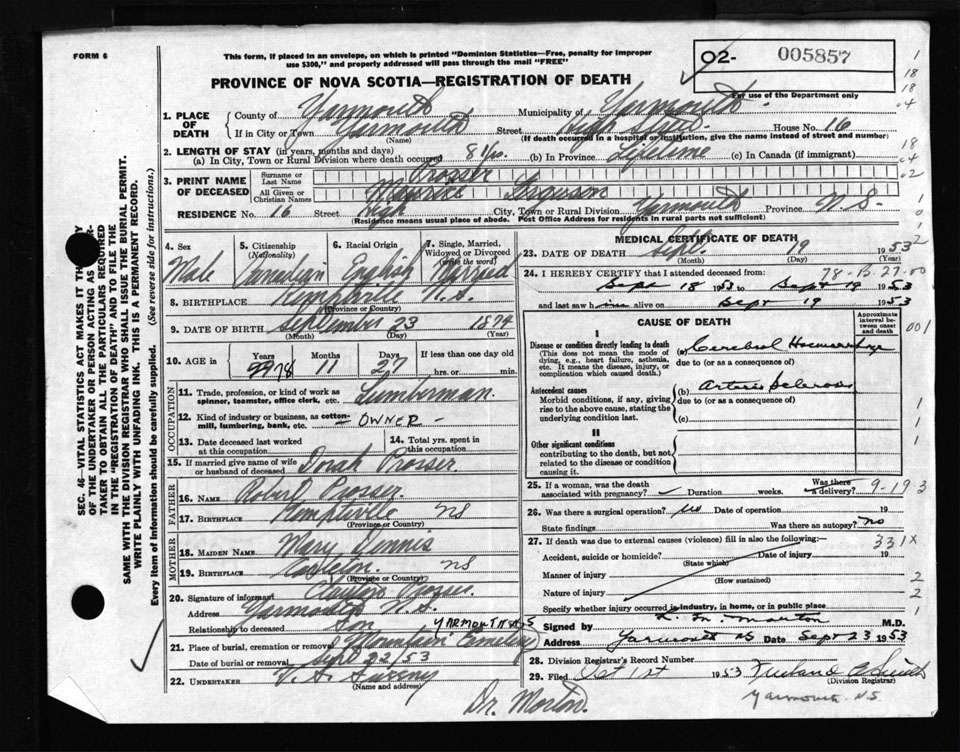 FORM 6
This form, if placed in an envelope, on which is printed "Dominion Statistics—Free, penalty for improper
use $300," and properly addressed will pass through the mail "FREE"
O2- 005857
For use of the Department only
PROVINCE OF NOVA SCOTIA—REGISTRATION OF DEATH
1. PLACE OF DEATH
County of Yarmouth Municipality of Yarmouth
If in City or Town Yarmouth Street High House No. 16
(Name) (If death occurred in a hospital or institution, give the name instead of street and number)
2. LENGTH OF STAY (in years, months and days)
(a) In City, Town or Rural Division where death occurred (b) In Province Lifetime (c) In Canada (if immigrant)
3. PRINT NAME OF DECEASED
Surname or Last Name Prosser
All Given or Christian Names Maurice Ferguson
RESIDENCE No. 16 Street High City, Town or Rural Division Yarmouth N.S.
(Residence means usual place of abode. Post Office Address for residents in rural parts not sufficient)
4. Sex Male
5. Citizenship (Nationality) Canadian
6. Racial Origin English
7. Single, Married, Widowed or Divorced (write the word) Married
8. BIRTHPLACE Kemptville N.S.
(Province or Country)
9. DATE OF BIRTH September 23 1874
(Month) (Day) (Year)
10. AGE in Years 78 Months 11 Days 27 If less than one day old
hrs. or min.
OCCUPATION
11. Trade, profession, or kind of work as spinner, teamster, office clerk, etc. Lumberman
12. Kind of industry or business, as cotton-mill, lumbering, bank, etc. - OWNER -
13. Date deceased last worked at this occupation
14. Total yrs. spent in this occupation
15. If married give name of wife or husband of deceased Dorah Prosser
FATHER
16. NAME Robert Prosser
17. BIRTHPLACE Kemptville NS
(Province or Country)
MOTHER
18. MAIDEN NAME Mary Dennis
19. BIRTHPLACE Carleton NS
(Province or Country)
20. Signature of informant Prosser
Address Yarmouth N.S.
Relationship to deceased Son
YARMOUTH N.S
21. Place of burial, cremation or removal Mountain Cemetery
Date of burial or removal Sept 22/53
22. UNDERTAKER V. S. Sweeny
(Name and address)
Dr. Morton.
MEDICAL CERTIFICATE OF DEATH
23. DATE OF DEATH Sept. 19 1953
(Month) (Day) (Year)
78-B-27-00
24. I HEREBY CERTIFY that I attended deceased from:
Sept 18 1953 to Sept 19 1953
and last saw him alive on Sept 19 1953
CAUSE OF DEATH
Approximate interval between onset and death
I
Disease or condition directly leading to death
(This does not mean the mode of dying, e.g., heart failure, asthenia, etc. It means the disease, injury, or complication which caused death.)
(a) Cerebral Hoemorrhage
due to (or as a consequence of)
Antecedent causes
Morbid conditions, if any, giving rise to the above cause, stating the underlying condition last.
(b) Arterio Sclerosis
due to (or as a consequence of)
(c)
II
Other significant conditions
contributing to the death, but not related to the disease or condition causing it.
25. If a woman, was the death associated with pregnancy? Duration weeks. Was there a delivery? 9-19-3
26. Was there a surgical operation? no Date of operation 19
State findings Was there an autopsy? no
27. If death was due to external causes (violence) fill in also the following: 331X
Accident, suicide or homicide? Date of injury 19
(State which)
Manner of injury
(How sustained)
Nature of injury
Specify whether injury occurred in industry, in home, or in public place
Signed by L. M. Morton M.D.
Address Yarmouth NS Date Sept 23 1953
28. Division Registrar's Record Number
29. Filed Oct 1st 1953 Smith
(Division Registrar)
Yarmouth N.S.
SEC. 46—VITAL STATISTICS ACT MAKES IT THE DUTY
OF THE UNDERTAKER OR PERSON ACTING AS UNDER-
TAKER TO OBTAIN ALL THE PARTICULARS REQUIRED
IN THE "REGISTRATION OF DEATH" AND TO FILE THE
SAME WITH THE DIVISION REGISTRAR WHO SHALL ISSUE THE BURIAL PERMIT.
WRITE PLAINLY WITH UNFADING INK. THIS IS A PERMANENT RECORD.
Every item of information should be carefully supplied. (See reverse side for instructions.)
1
18
18
04
18
04
02
1
0
1
2
001
1
1
1
2
2
1